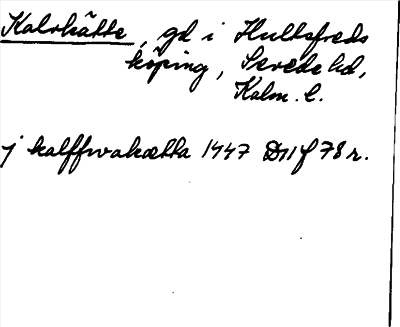 Kalvkätte, gd i Hultsfreds
köping, Sevede hd,
Kalm. l.
j kalffwakætta 1447 D11 f 78 r.